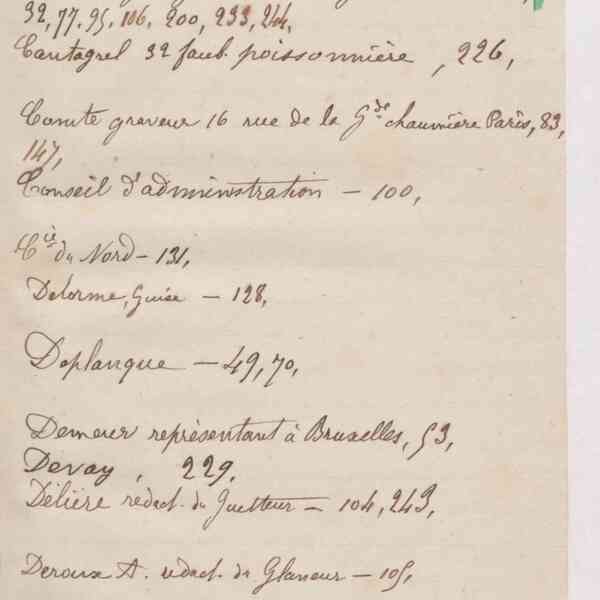 32, 77, 95, 106, 200, 233, 244,
Cantagrel 32 faub. poissonnière, 226,
Comte graveur 16 rue de la Gde chaumière Paris, 83,
147,
Conseil d'administration – 100,
Cie du Nord – 131,
Delorme, Guise – 128,
Deplanque – 49, 70,
Demeur représentant à Bruxelles, 53,
Devay, 229,
Délière rédact. du Guetteur – 104, 243,
Deroux A. redact. du Glaneur – 105,